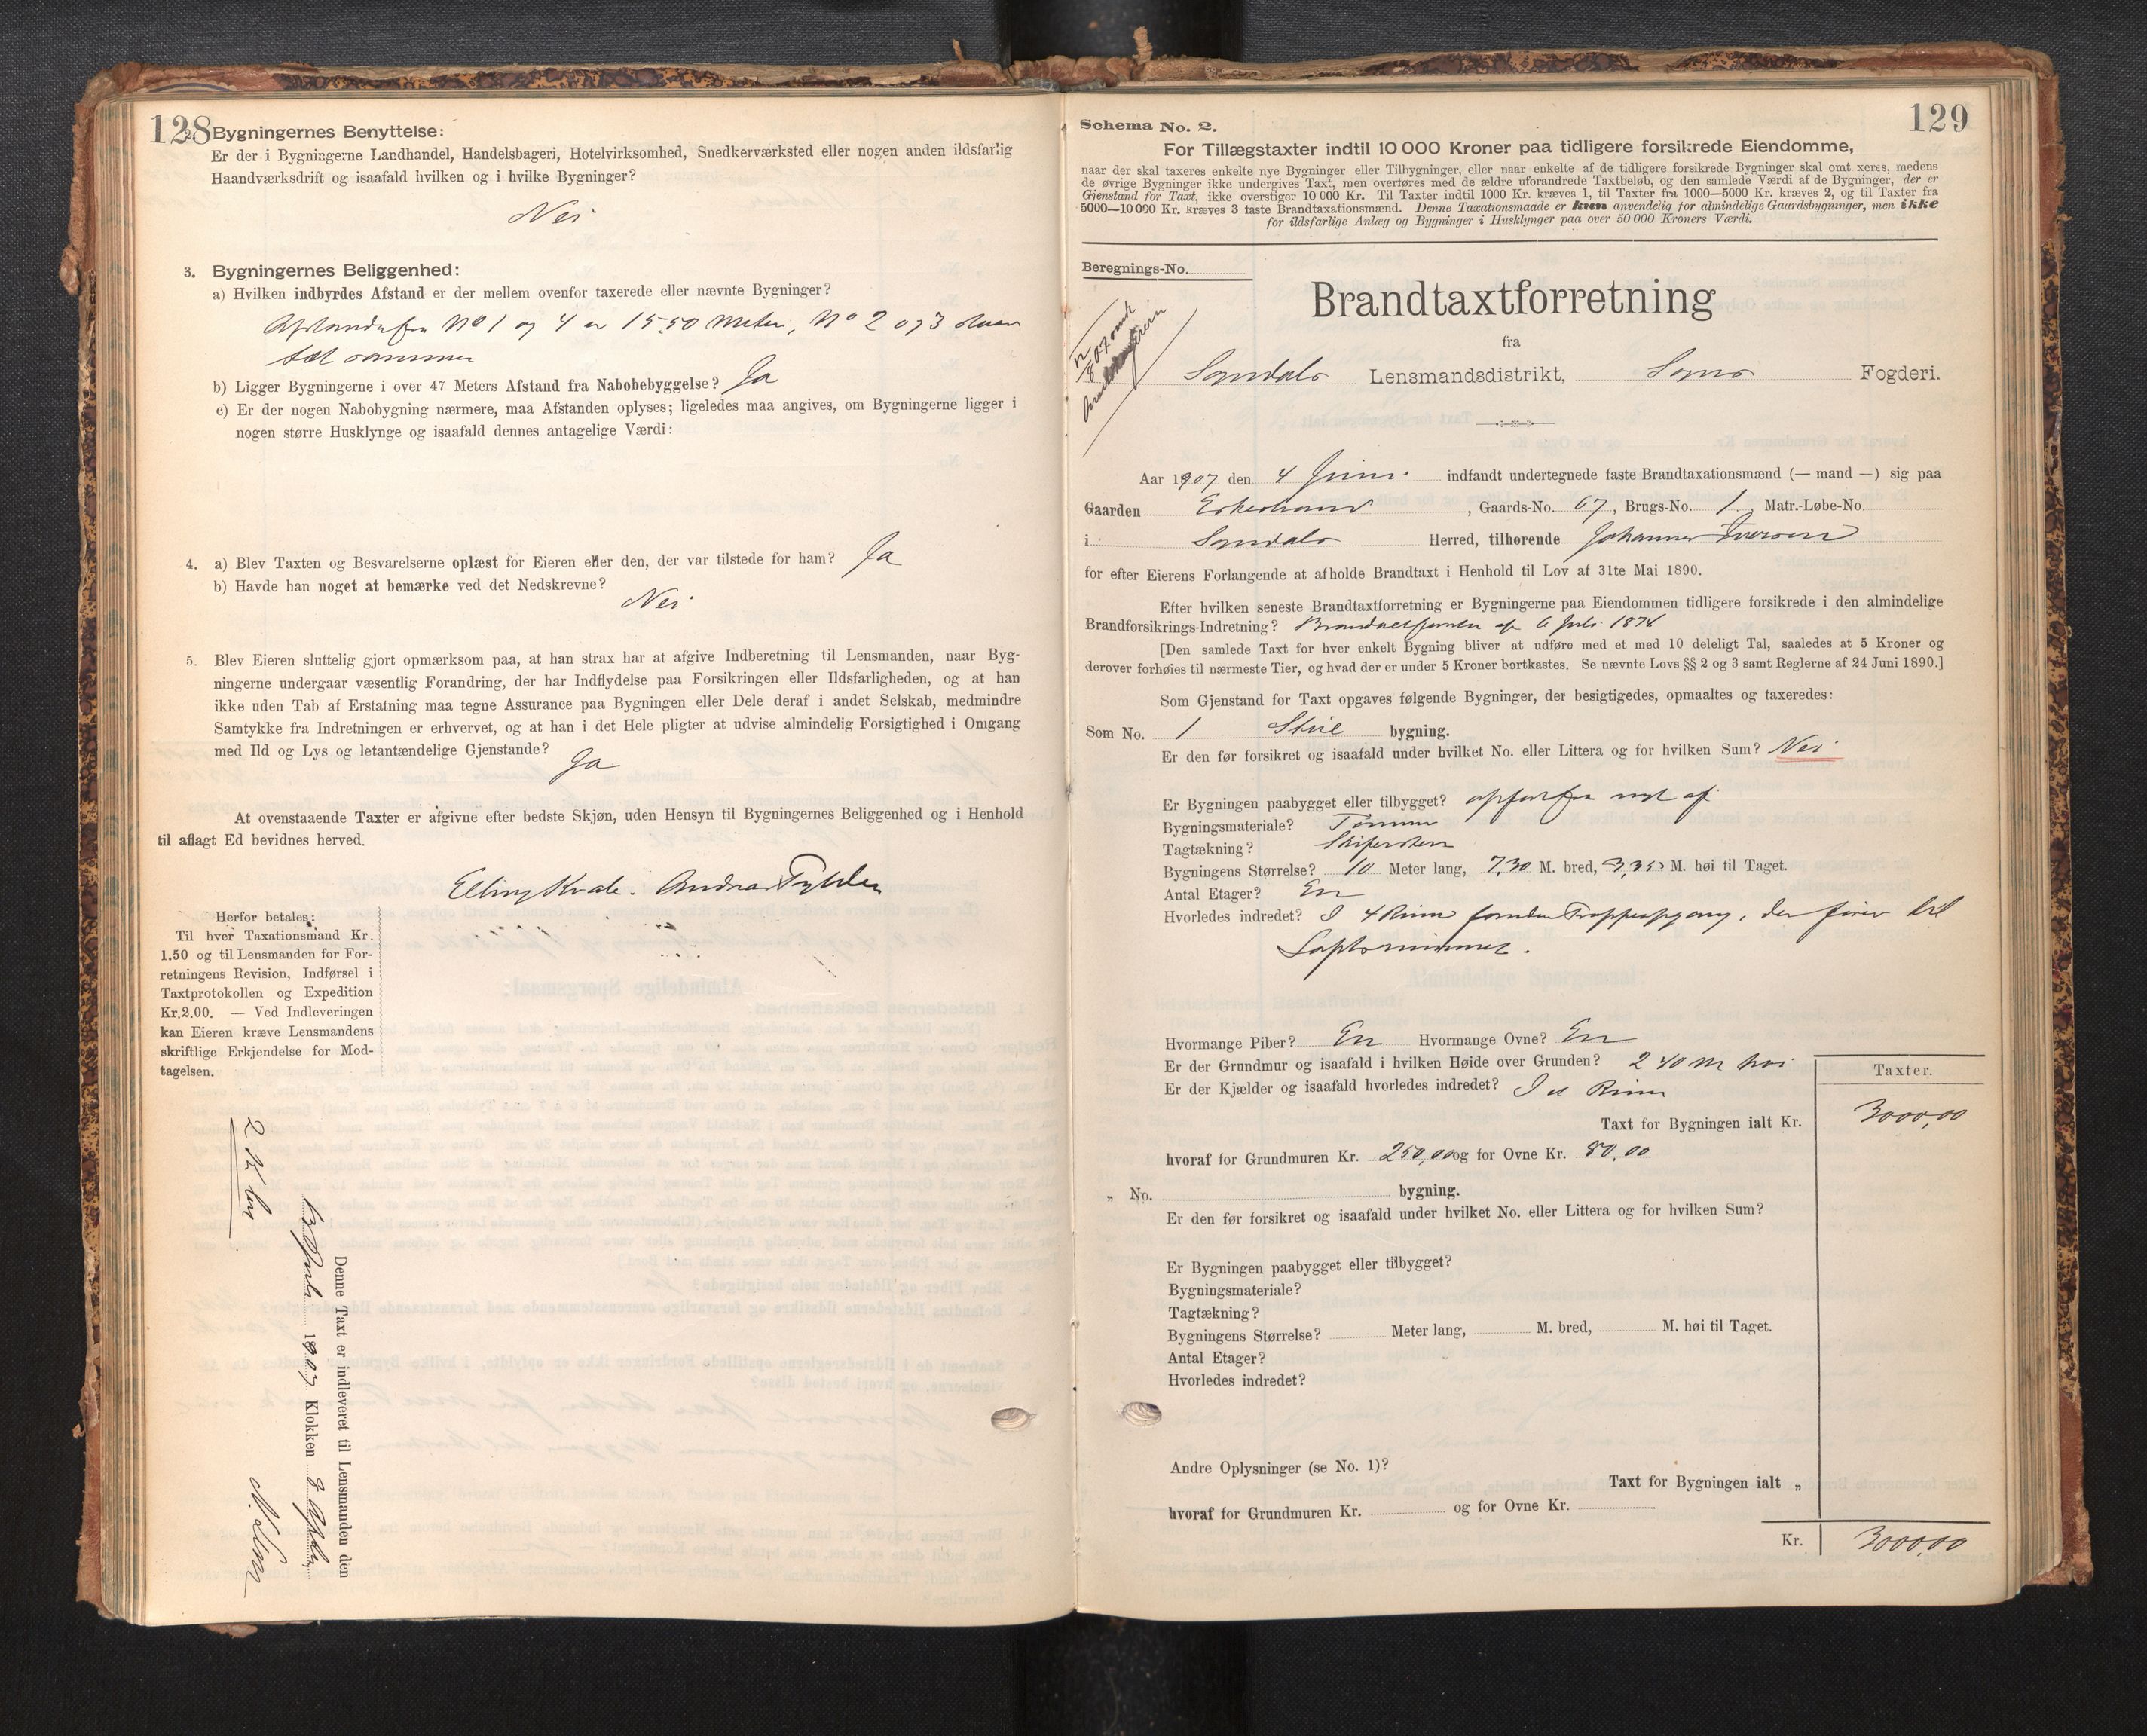 128
2. Bygningernes Benyttelse:
Er der i Bygningerne Landhandel, Handelsbageri, Hotelvirksomhed, Snedkerværksted eller nogen anden ildsfarlig
Haandværksdrift og isaafald hvilken og i hvilke Bygninger?
Nei
3. Bygningernes Beliggenhed:
a) Hvilken indbyrdes Afstand er der mellem ovenfor taxerede eller nævnte Bygninger?
No 1 og 4 er 15.50 Meter, No 2 og 3 staar
til sammen
b) Ligger Bygningerne i over 47 Meters Afstand fra Nabobebyggelse? Ja
c) Er der nogen Nabobygning nærmere, maa Afstanden oplyses; ligeledes maa angives, om Bygningerne ligger i
nogen større Husklynge og isaafald dennes antagelige Værdi:
4. a) Blev Taxten og Besvarelserne oplæst for Eieren eller den, der var tilstede for ham? Ja
b) Havde han noget at bemærke ved det Nedskrevne?
Nei
5. Blev Eieren sluttelig gjort opmærksom paa, at han strax har at afgive Indberetning til Lensmanden, naar Byg-
ningerne undergaar væsentlig Forandring, der har Indflydelse paa Forsikringen eller Ildsfarligheden, og at han
ikke uden Tab af Erstatning maa tegne Assurance paa Bygningen eller Dele deraf i andet Selskab, medmindre
Samtykke fra Indretningen er erhvervet, og at han i det Hele pligter at udvise almindelig Forsigtighed i Omgang
med Ild og Lys og letantændelige Gjenstande?
Ja
At ovenstaaende Taxter er afgivne efter bedste Skjøn, uden Hensyn til Bygningernes Beliggenhed og i Henhold
til aflagt Ed bevidnes herved.
Elling Kvale.
Herfor betales:
Til hver Taxationsmand Kr.
1.50 og til Lensmanden for For-
retningens Revision, Indførsel i
Taxtprotokollen og Expedition
Kr.2.00. — Ved Indleveringen
kan Eieren kræve Lensmandens
skriftlige Erkjendelse for Mod-
tagelsen.
Denne Taxt er indleveret til Lensmanden den
1907 Klokken 8
129
Schema No. 2.
For Tillægstaxter indtil 10 000 Kroner paa tidligere forsikrede Eiendomme,
naar der skal taxeres enkelte nye Bygninger eller Tilbygninger, eller naar enkelte af de tidligere forsikrede Bygninger skal omtaxeres, medens
de øvrige Bygninger ikke undergives Taxt, men overføres med de ældre uforandrede Taxtbeløb, og den samlede Værdi af de Bygninger, der er
Gjenstand for Taxt, ikke overstiger 10 000 Kr. Til Taxter indtil 1000 Kr. kræves 1, til Taxter fra 1000—5000 Kr. kræves 2, og til Taxter fra
5000—10 000 Kr. kræves 3 faste Brandtaxationsmænd. Denne Taxationsmaade er kun anvendelig for almindelige Gaardsbygninger, men ikke
for ildsfarlige Anlæg og Bygninger i Husklynger paa over 50 000 Kroners Værdi.
Beregnings-No.
Brandtaxtforretning
fra
Sogndals Lensmandsdistrikt, Sogns Fogderi.
Aar 1907 den 4 Juni indfandt undertegnede faste Brandtaxationsmænd (— mand —) sig paa
Gaarden , Gaards-No. 67, Brugs-No. 1. Matr.-Løbe-No.
i Sogndals Herred, tilhørende Johannes Iversen
for efter Eierens Forlangende at afholde Brandtaxt i Henhold til Lov af 31te Mai 1890.
Efter hvilken seneste Brandtaxtforretning er Bygningerne paa Eiendommen tidligere forsikrede i den almindelige
Brandforsikrings-Indretning? af 6 Juli 1874
[Den samlede Taxt for hver enkelt Bygning bliver at udføre med et med 10 deleligt Tal, saaledes at 5 Kroner og
derover forhøies til nærmeste Tier, og hvad der er under 5 Kroner bortkastes. Se nævnte Lovs §§ 2 og 3 samt Reglerne af 24 Juni 1890.]
Som Gjenstand for Taxt opgaves følgende Bygninger, der besigtigedes, opmaaltes og taxeredes:
Som No. 1 Stue bygning.
Er den før forsikret og isaafald under hvilket No. eller Littera og for hvilken Sum? Nei
Er Bygningen paabygget eller tilbygget? opført fra nyt af
Bygningsmateriale? Tømmer
Tagtækning? Skifersten
Bygningens Størrelse? 10 Meter lang, 7,30 M. bred, 3,35 M. høi til Taget.
Antal Etager? En
Hvorledes indredet? I 4 Rum foruden Trappeopgang, der fører til
Loftsrummet.
Hvormange Piber? En Hvormange Ovne? En
Er der Grundmur og isaafald i hvilken Høide over Grunden? 2 40 m høi
Er der Kjælder og isaafald hvorledes indredet? I et Rum
Taxter.
Taxt for Bygningen ialt Kr. 3000,00
hvoraf for Grundmuren Kr. 250,00 og for Ovne Kr. 80,00
„ No. bygning.
Er den før forsikret og isaafald under hvilket No. eller Littera og for hvilken Sum?
Er Bygningen paabygget eller tilbygget?
Bygningsmateriale?
Tagtækning?
Bygningens Størrelse? Meter lang, M. bred, M. høi til Taget.
Antal Etager?
Hvorledes indredet?
Andre Oplysninger (se No. 1)?
Taxt for Bygningen ialt „
hvoraf for Grundmuren Kr. og for Ovne Kr.
Kr. 3000,00